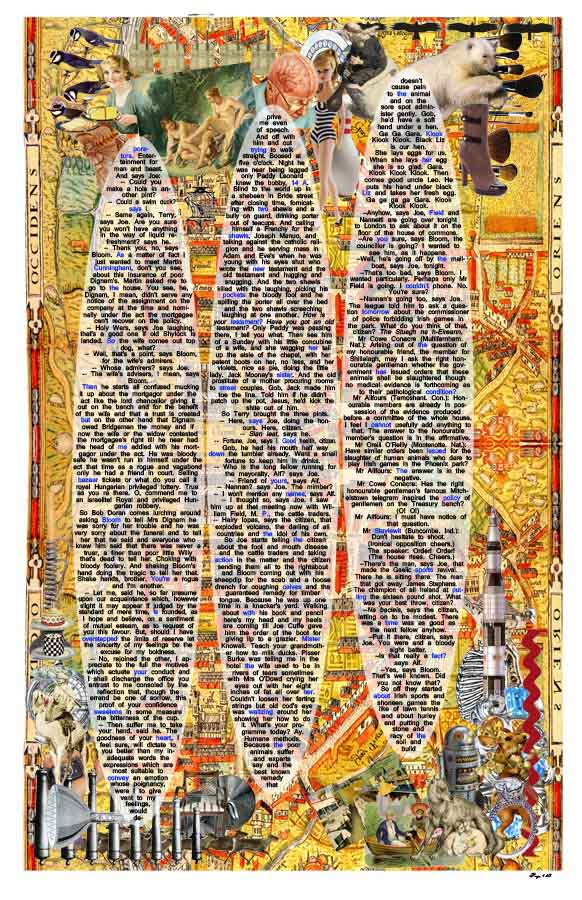 OCCIDENS
ORIENS
pore-
tors. Enter-
tainment for
man and beast.
And says Joe.
– Could you
make a hole in an-
other pint?
– Could a swim duck?
says I.
– Same again, Terry,
says Joe. Are you sure
you won't have anything
in the way of liquid re-
freshment? says he.
– Thank you, no, says
Bloom. As a matter of fact I
just wanted to meet Martin
Cunningham, don't you see,
about this insurance of poor
Dignam's. Martin asked me to
go to the house. You see, he,
Dignam, I mean, didn't serve any
notice of the assignment on the
company at the time and nomi-
nally under the act the mortgagee
can't recover on the policy.
– Holy Wars, says Joe laughing,
that's a good one if old Shylock is
landed. So the wife comes out top
dog, what?
– Well, that's a point, says Bloom,
for the wife's admirers.
– Whose admirers? says Joe.
– The wife's advisers, I mean, says
Bloom.
Then he starts all confused mucking
it up about the mortgagor under the
act like the lord chancellor giving it
out on the bench and for the benefit
of the wife and that a trust is created
but on the other hand that Dignam
owed Bridgeman the money and if
now the wife or the widow contested
the mortgagee's right till he near had
the head of me addled with his mort-
gagor under the act. He was bloody
safe he wasn't run in himself under the
act that time as a rogue and vagabond
only he had a friend in court. Selling
bazaar tickets or what do you call it
royal Hungarian privileged lottery. True
as you're there. O, commend me to
an israelite! Royal and privileged Hun-
garian robbery.
So Bob Doran comes lurching around
asking Bloom to tell Mrs Dignam he
was sorry for her trouble and he was
very sorry about the funeral and to tell
her that he said and everyone who
knew him said that there was never a
truer, a finer than poor little Willy
that's dead to tell her. Choking with
bloody foolery. And shaking Bloom's
hand doing the tragic to tell her that.
Shake hands, brother. You're a rogue
and I'm another.
– Let me, said he, so far presume
upon our acquaintance which, however
slight it may appear if judged by the
standard of mere time, is founded, as
I hope and believe, on a sentiment
of mutual esteem, as to request of
you this favour. But, should I have
overstepped the limits of reserve let
the sincerity of my feelings be the
excuse for my boldness.
– No, rejoined the other, I ap-
preciate to the full the motives
which actuate your conduct and
I shall discharge the office you
entrust to me consoled by the
reflection that, though the
errand be one of sorrow, this
proof of your confidence
sweetens in some measure
the bitterness of the cup.
– Then suffer me to take
your hand, said he. The
goodness of your heart, I
feel sure, will dictate to
you better than my in-
adequate words the
expressions which are
most suitable to
convey an emotion
whose poignancy,
were I to give
vent to my
feelings,
would
de-
prive
me even
of speech.
And off with
him and out
trying to walk
straight. Boosed at
five o'clock. Night he
was near being lagged
only Paddy Leonard
knew the bobby, 14 A.
Blind to the world up in
a shebeen in Bride street
after closing time, fornicat-
ing with two shawls and a
bully on guard, drinking porter
out of teacups. And calling
himself a Frenchy for the
shawls, Joseph Manuo, and
talking against the catholic reli-
gion and he serving mass in
Adam and Eve's when he was
young with his eyes shut who
wrote the new testament and the
old testament and hugging and
smugging. And the two shawls
killed with the laughing, picking his
pockets the bloody fool and he
spilling the porter all over the bed
and the two shawls screeching
laughing at one another. How is
your testament? Have you got an old
testament? Only Paddy was passing
there, I tell you what. Then see him
of a Sunday with his little concubine
of a wife, and she wagging her tail
up the aisle of the chapel, with her
patent boots on her, no less, and her
violets, nice as pie, doing the little
lady. Jack Mooney's sister. And the old
prostitute of a mother procuring rooms
to street couples. Gob, Jack made him
toe the line. Told him if he didn't
patch up the pot, Jesus, he'd kick the
shite out of him.
So Terry brought the three pints.
– Here, says Joe, doing the hon-
ours. Here, citizen.
– Slan leat, says he.
– Fortune, Joe, says I. Good health, citizen.
Gob, he had his mouth half way
down the tumbler already. Want a small
fortune to keep him in drinks.
– Who is the long fellow running for
the mayoralty, Alf? says Joe.
– Friend of yours, says Alf.
– Nannan? says Joe. The mimber?
– I won't mention any names, says Alf.
– I thought so, says Joe. I saw
him up at that meeting now with Wil-
liam Field, M. P., the cattle traders.
– Hairy Iopas, says the citizen, that
exploded volcano, the darling of all
countries and the idol of his own.
So Joe starts telling the citizen
about the foot and mouth disease
and the cattle traders and taking
action in the matter and the citizen
sending them all to the rightabout
and Bloom coming out with his
sheepdip for the scab and a hoose
drench for coughing calves and the
guaranteed remedy for timber
tongue. Because he was up one
time in a knacker's yard. Walking
about with his book and pencil
here's my head and my heels
are coming till Joe Cuffe gave
him the order of the boot for
giving lip to a grazier. Mister
Knowall. Teach your grandmoth-
er how to milk ducks. Pisser
Burke was telling me in the
hotel the wife used to be in
rivers of tears sometimes
with Mrs O'Dowd crying her
eyes out with her eight
inches of fat all over her.
Couldn't loosen her farting
strings but old cod's eye
was waltzing around her
showing her how to do
it. What's your pro-
gramme today? Ay.
Humane methods.
Because the poor
animals suffer
and experts
say and the
best known
remedy
that
doesn't
cause pain
to the animal
and on the
sore spot admin-
ister gently. Gob,
he'd have a soft
hand under a hen.
Ga Ga Gara. Klook
Klook Klook. Black Liz
is our hen.
She lays eggs for us.
When she lays her egg
she is so glad. Gara.
Klook Klook Klook. Then
comes good uncle Leo. He
puts his hand under black
Liz and takes her fresh egg.
Ga ga ga ga Gara. Klook
Klook Klook.
–Anyhow, says Joe, Field and
Nannetti are going over tonight
to London to ask about it on the
floor of the house of commons.
–Are you sure, says Bloom, the
councillor is going? I wanted to
see him, as it happens.
–Well, he's going off by the mail-
boat, says Joe, tonight.
–That's too bad, says Bloom. I
wanted particularly. Perhaps only Mr
Field is going. I couldn't phone. No.
You're sure?
–Nannan's going too, says Joe.
The league told him to ask a ques-
tion tomorrow about the commissioner
of police forbidding Irish games in
the park. What do you think of that,
citizen? The Sluagh na h-Eireann.
Mr Cowe Conacre (Multifarnham.
Nat.): Arising out of the question of
my honourable friend, the member for
Shillelagh, may I ask the right hon-
ourable gentleman whether the gov-
ernment has issued orders that these
animals shall be slaughtered though
no medical evidence is forthcoming as
to their pathological condition?
Mr Allfours (Tamoshant. Con.): Hon-
ourable members are already in pos-
session of the evidence produced
before a committee of the whole house.
I feel I cannot usefully add anything to
that. The answer to the honourable
member's question is in the affirmative.
Mr Orelli O'Reilly (Montenotte. Nat.):
Have similar orders been issued for the
slaughter of human animals who dare to
play Irish games in the Phoenix park?
Mr Allfours: The answer is in the
negative.
Mr Cowe Conacre: Has the right
honourable gentleman's famous Mitch-
elstown telegram inspired the policy of
gentlemen on the Treasury bench?
(O! O!)
Mr Allfours: I must have notice of
that question.
Mr Staylewit (Buncombe. Ind.):
Don't hesitate to shoot.
(Ironical opposition cheers.)
The speaker: Order! Order!
(The house rises. Cheers.)
–There's the man, says Joe, that
made the Gaelic sports revival.
There he is sitting there. The man
that got away James Stephens.
The champion of all Ireland at put-
ting the sixteen pound shot. What
was your best throw, citizen?
–Na bacleis, says the citizen,
letting on to be modest. There
was a time I was as good as
the next fellow anyhow.
–Put it there, citizen, says
Joe. You were and a bloody
sight better.
–Is that really a fact?
says Alf.
–Yes, says Bloom.
That's well known. Did
you not know that?
So off they started
about Irish sports and
shoneen games the
like of lawn tennis
and about hurley
and putting the
stone and
racy of the
soil and
build